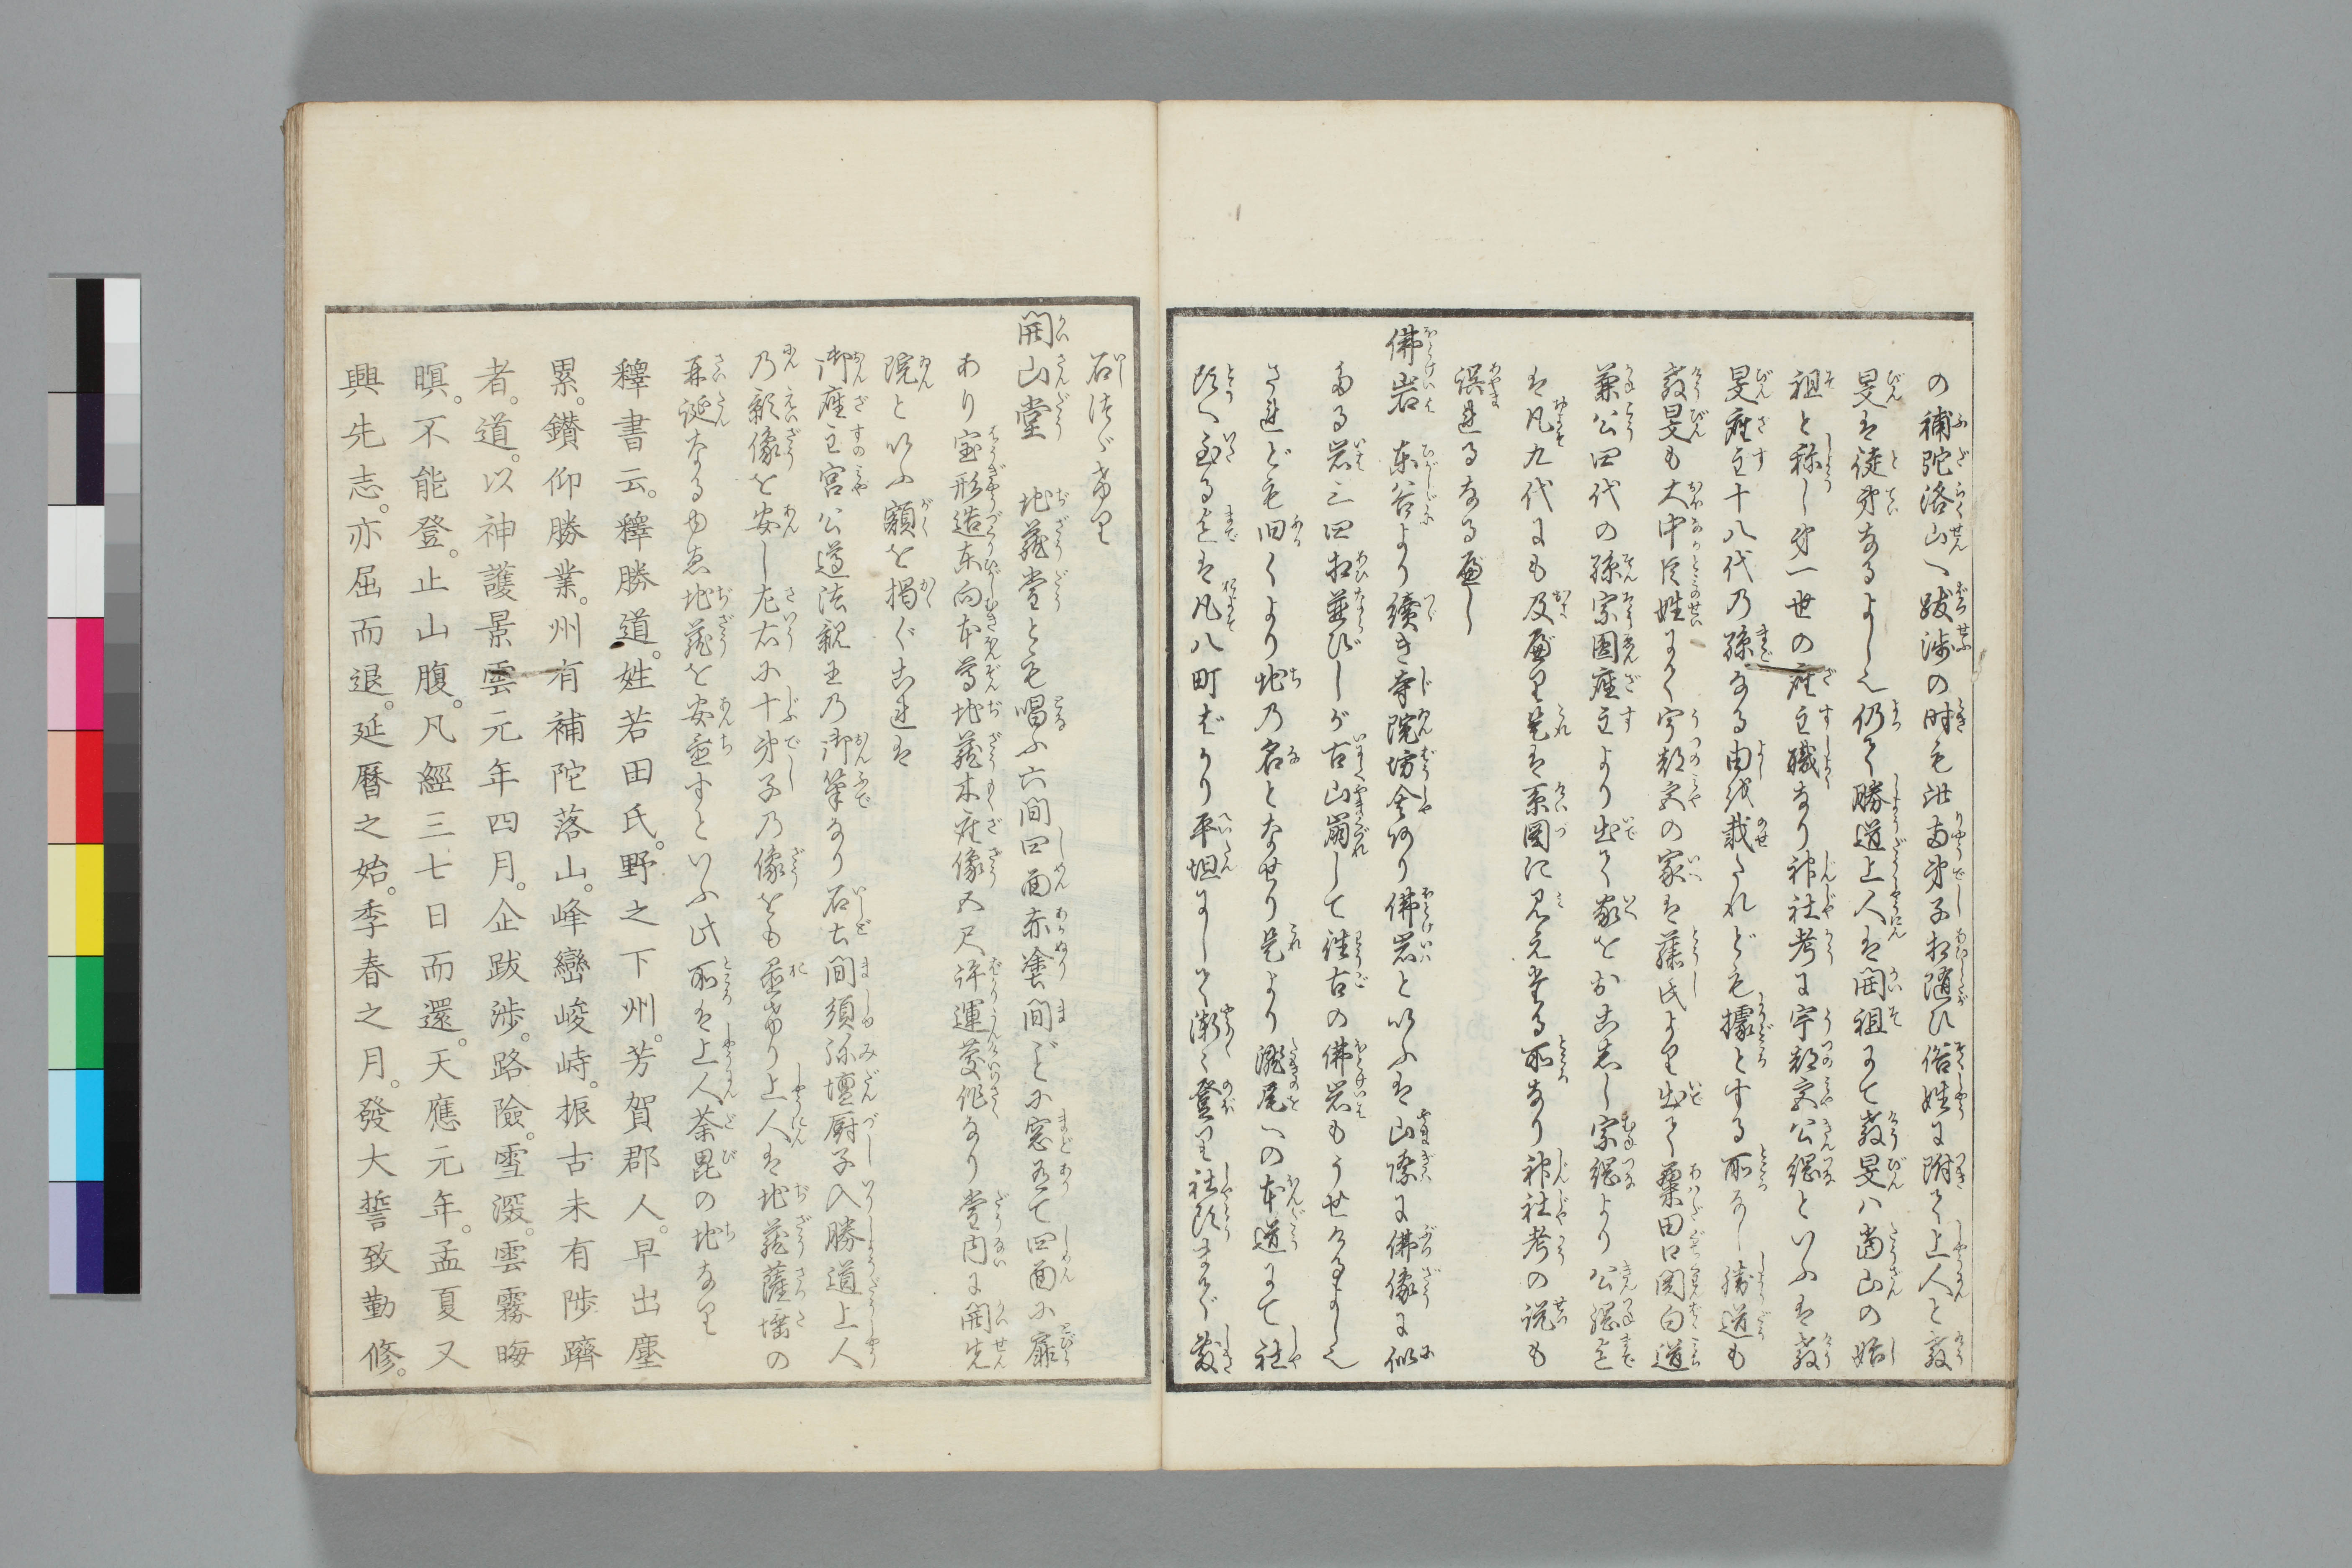 の補陀洛山へ跋渉の時も此両弟子相随ひ俗姓に附て上人と教
旻は徒弟なるよし也仍て勝道上人は開祖にて教旻ハ当山の始
祖と称し第一世の座主職なり神社考に宇都宮公綱といふは教
旻座主十八代乃孫なる由を載たれども據とする所なし勝道も
教旻も大中臣姓にて宇都宮の家は藤氏より出て粟田口関白道
兼公四代の孫宗圓座主より出て家をおこし宗綱より公綱まで
は凡九代にも及べり是は系図に見えたる所なり神社考の説も
誤れるなるべし
佛岩 東谷より続き寺院坊舎あり佛岩といふは山際に佛像に似
たる岩三四相並びしが古山崩して往古の佛岩もうせけるよし也
されども旧くより地乃名となせり是より瀧尾への本道にて社
頭へ至る迄は凡八町ばかり平坦にして漸々登り社頭まで敷
石つゞけり
開山堂 地蔵堂とも唱ふ六間四面赤塗間ごとに窓有て四面に扉
あり宝形造東向本尊地蔵木座像五尺許運慶作なり堂内に開先
院といふ額を掲ぐこれは
御座主宮公遵法親王乃御筆なり石古間須弥壇厨子入勝道上人
乃影像を安し左右に十弟子乃像をも置けり上人は地蔵薩埵の
再誕なるゆゑ地蔵を安置すといふ此所は上人荼毘の地なり
釋書云。釋勝道。姓若田氏。野之下州。芳賀郡人。早出塵
累。鑚仰勝業。州有補陀落山。峰巒峻峙。振古未有陟躋
者。道。以神護景雲元年四月。企跋渉。路險。雪深。雲霧晦
暝。不能登。止山腹。凡經三七日而還。天應元年。孟夏又
興先志。亦屈而退。延暦之始。季春之月。發大誓致勤修。